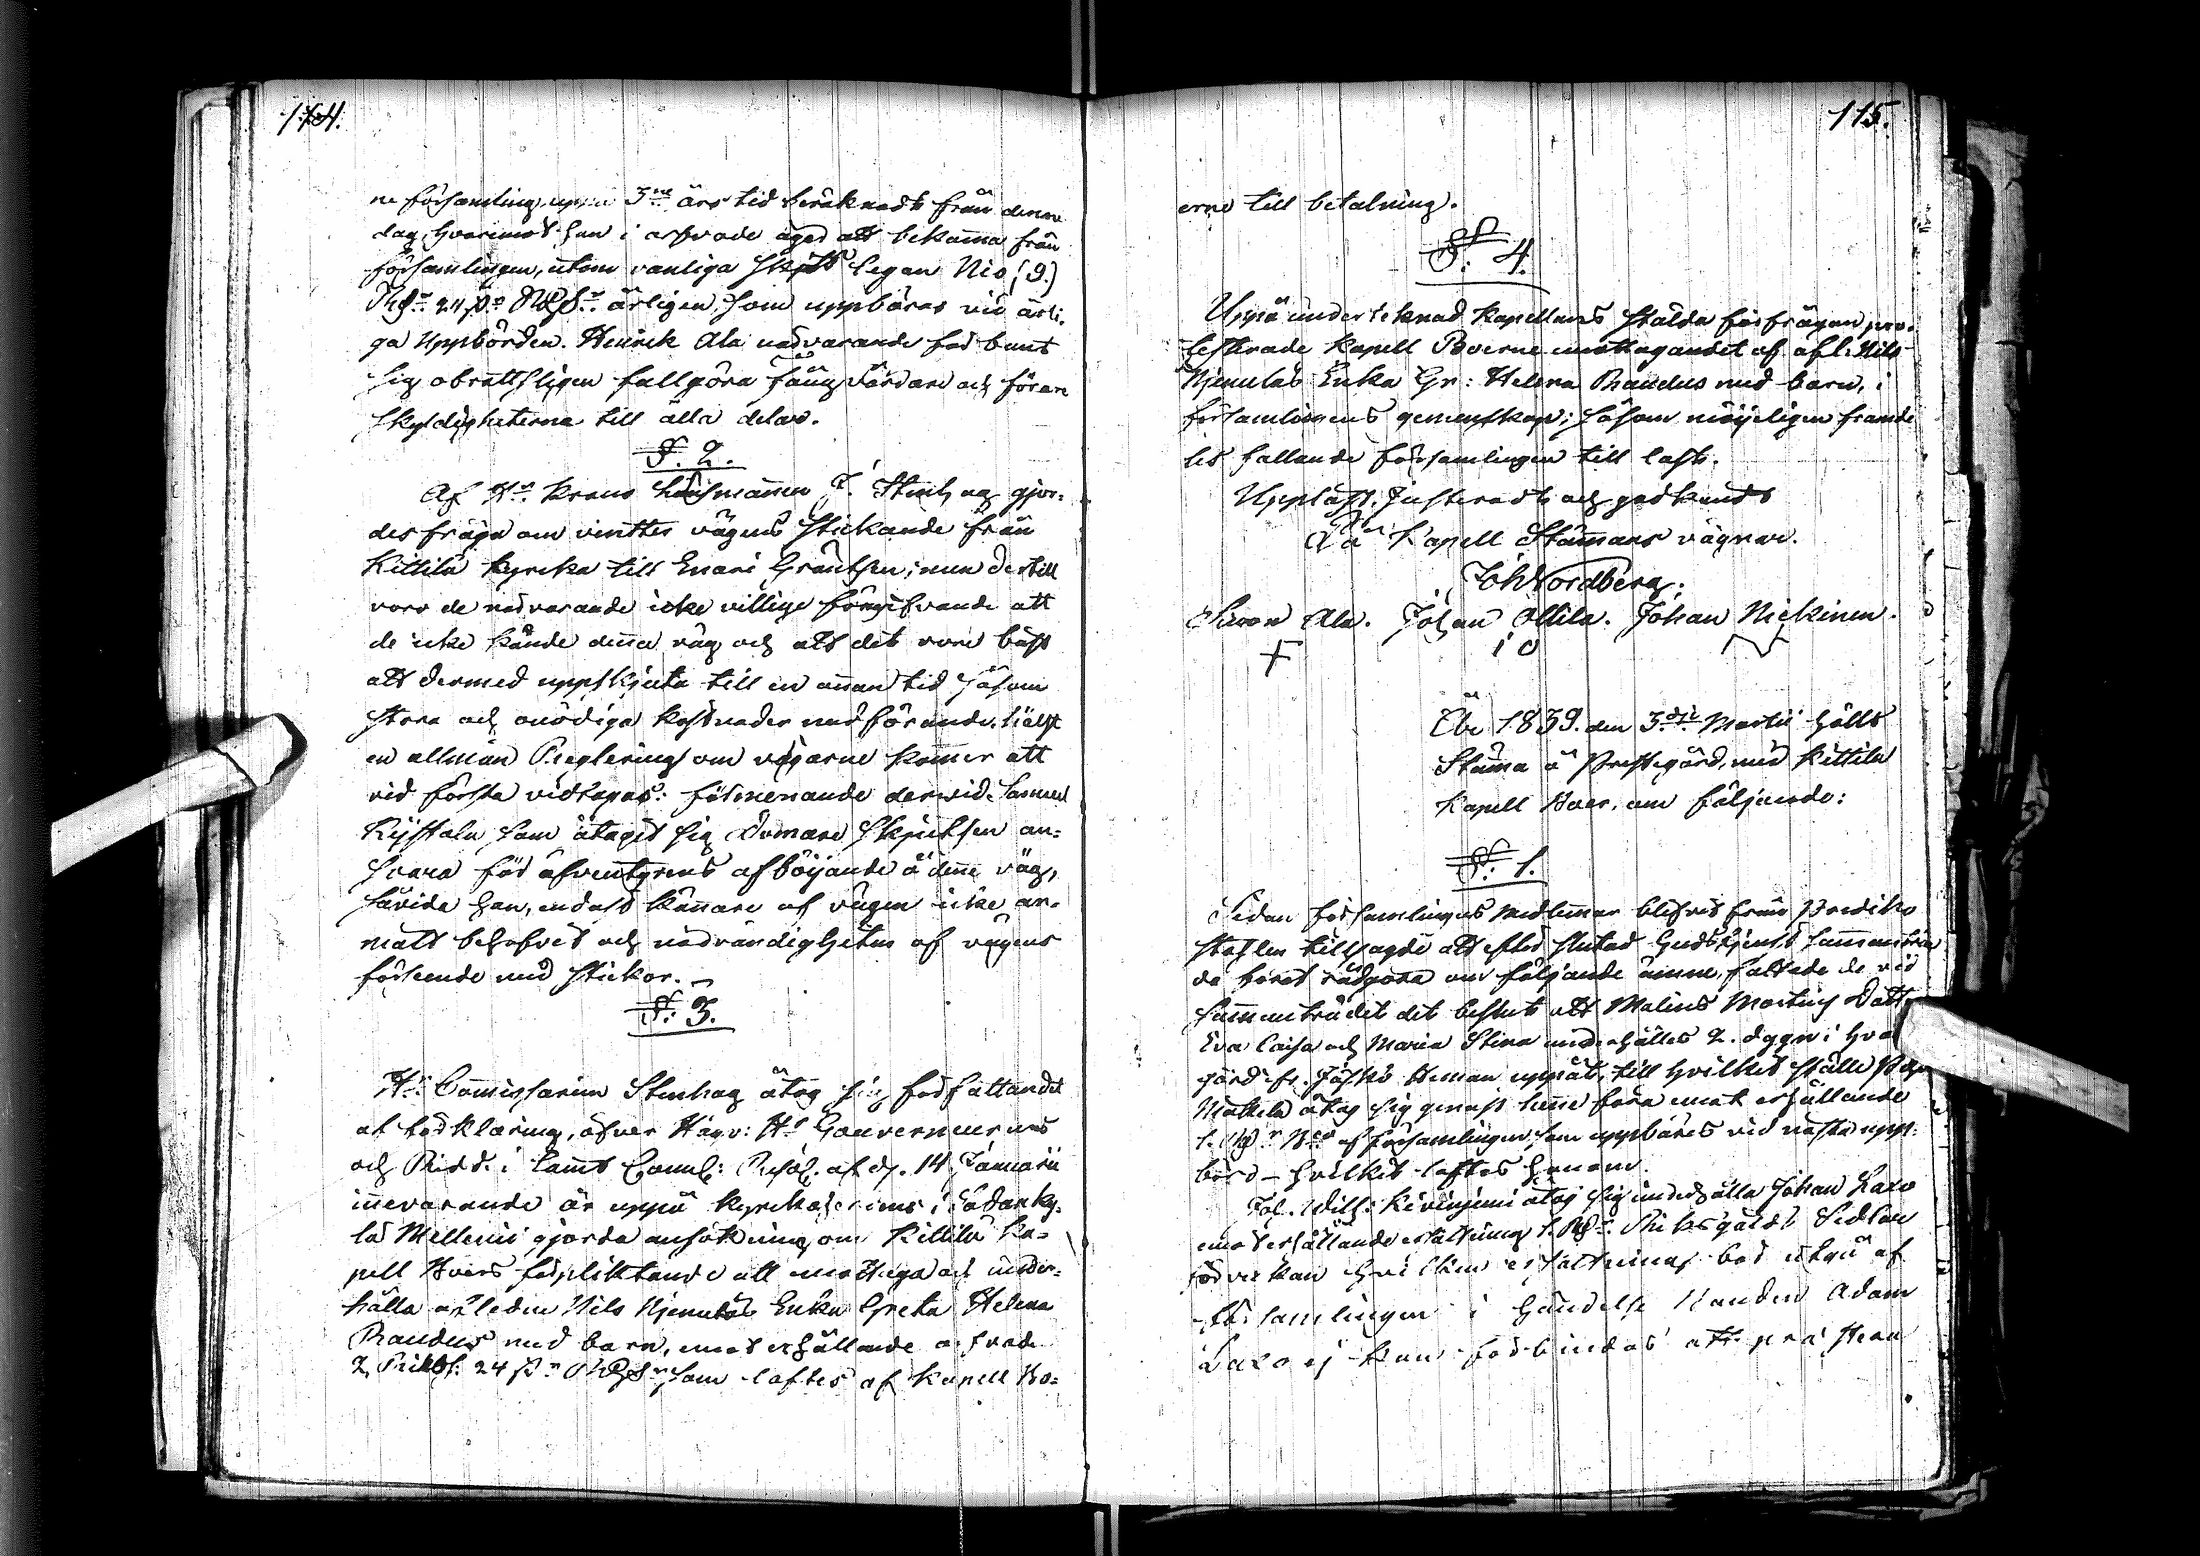 114.
ne församling, uppå 3ne års tid beräknadt från denne
dag, hvaremot han i arfvode äger att bekomma från
församlingen, utom vanliga skjuts legan Nio (9.)
Rdr 24 årligen, som uppbäras vid årli-
ga Uppbörden. Henrik Ala nedvarande förbant
sig obrottsligen fullgöra fång vårdare och förare
skyldigheterna till alla delar.
§. 2.
Af Hr Krono Länsmannen J. Stenhag gjor-
des fråga om vintter vägens stickande från
Kittilä kyrcka till Enari Gräntsen; men dertill
voro de nedvarande icke villige föregifvande att
de icke kände denna väg och att det vore bäst
att dermed uppskjuta till en annan tid såsom
stora och onödiga kostnader medförande, hälst
en allmän Reglering om vägarne kommer att
vid första vidtagas: förmenande dervid Samuel
Kystola som åtagit sig Domare Skjutsen an-
svara för äfventyrens afböijande å denne väg,
såvida han, endast kännare af vägen icke an-
mält behofvet och nödvändigheten af vägens
förseende med stickor.
§. 3.
Hr Commissarien Stenhag åtog sig författandet
af förklaring, öfver Högv: Hr Gouverneurens
och Ridd. i Länts Cancel: Resol. af d. 14 Januarii
innevarande år uppå kyrkoherdens i Sodanky-
lä Mellenii gjorda ansökning om Kittilä Ka-
pell Boers förpliktande att emottaga och under-
hålla afledne Nils Njemeläs Enka Greta Helena
Raudus med barn, emot erhållande arfvode
2 Riksd. 24 som loftes af Kapell Bo-
115.
erne till betalning.
§. 4.
Uppå undertecknad Kapellans stälda förfrågan, pro-
testerade Kapell Boerne emottagandet af afl. Nils
Njemeläs Enka Gr: Helena Raudus med barn, i
församlingens gemenskap; såsom möijeligen framde-
les fallande församlingen till last.
Uppläst, Justeradt och godkändt
På Kapell Stämmans vägnar.
Joh Nordberg.
Simon Ala. Johan Ollila. Johan Niekinen.
År 1839. den 3dje Martii hölts
Stämma å Prestegård, med Kittilä
Kapell Boer, om följande:
§. 1.
Sedan församlingens medlemmar blifvit från Prediko
stohlen tillsagde att efter slutad Gudstjenst sammanträ-
da rådgöra om följande ämne, fattade de vid
sammanträdet det beslut att Malins Martins Dotter
Eva Caisa och Maria Stina underhålles 2. dygn i hva
gård fr. Heman uppåt, till hvilket ställe
Mattila åtog sig genast henne föra emot erhållande
1. af församlingen som uppbäres vid nästa upp-
börd - hvilket loftes honom.
Joh. Will. Kivinjemi åtog sig underhålla Johan Laxo
emot erhållande ersättning 1. Riksgäldt Sedlar
för veckan hvilken ersättning bör utgå af
församlingen i händelse Adam
Laxo ej kan förbindas att prestera